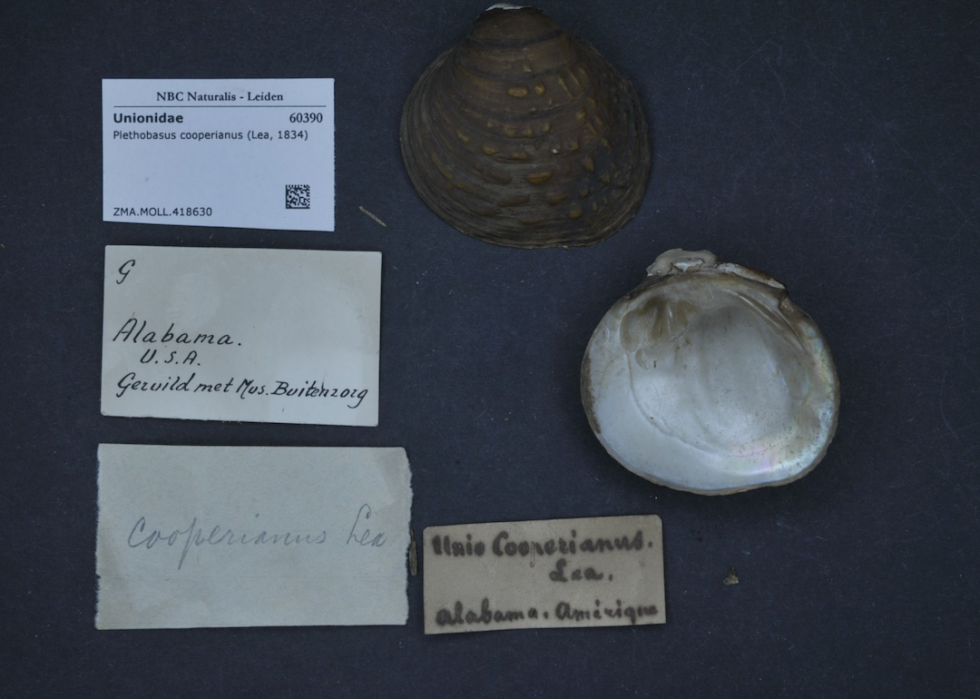 NBC Naturalis - Leiden
Unionidae 60390
Plethobasus cooperianus (Lea, 1834)
ZMA.MOLL.418630
G
Alabama.
U.S.A.
Geruild met Mus. Buitenzorg
cooperianus Lea
Unio Cooperianus.
Lea.
Alabama. Amérique